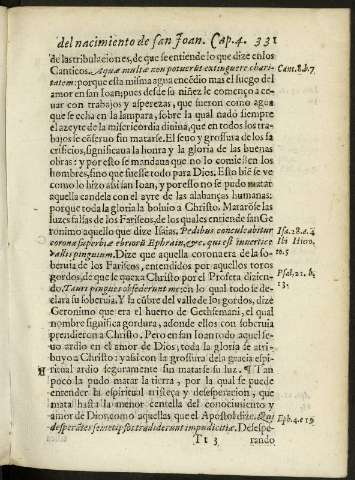 del nacimiento de san Joan. Cap. 4. 331
de las tribulaciones, de que se entiende lo que dize en los
Canticos. Aquæ multæ non potuerūt extinguere chari- Cant. 8. b. 7
tatem: porque esta misma agua encēdio mas el fuego del
amor en san Ioan; pues desde su niñez le començo a ce-
uar con trabajos y asperezas, que fueron como agua
que se echa en la lampara, sobre la qual nadò siempre
el azeyte de la misericordia diuina, que en todos los tra-
bajos se cōseruo sin matarse. El seuo y grossura de los sa
crificios, significaua la honra y la gloria de las buenas
obras: y por esso se mandaua que no lo comiessen los
hombres, sino que fuesse todo para Dios. Esto biē se ve
como lo hizo assi san Ioan, y por esso no se pudo matar
aquella candela con el ayre de las alabanças humanas:
porque toda la gloria la boluio a Christo. Mataronse las
luzes falsas de los Fariseos, de los quales entiende san Ge
ronimo aquello que dize Isaias. Pedibus conculcabitur Isa. 28. a. 4
corona superbiæ ebriorū Ephrain, &c. qui est in vertice Ibi Hiero.
vallis pinguium. Dize que aquella corona era de la so- to. 5
beruia de los Fariseos, entendidos por aquellos toros
gordos, de que se quexa Christo por el Profeta dizien- Psal. 21. b.
do. Tauri pingues obsederunt me: en lo qual todo se de- 13.
clara su soberuia. Y la cūbre del valle de los gordos, dize
Geronimo que era el huerto de Gethsemani, el qual
nombre significa gordura, adonde ellos con soberuia
prendieron a Christo. Pero en san Ioan todo aquel se-
uo ardio en el amor de Dios, toda la gloria se atri-
buyo a Christo: y assi con la grossura de la gracia espi-
H ritual ardio seguramente sin matarse su luz. ¶ Tan
poco la pudo matar la tierra, por la qual se puede
entender la espiritual tristeza y desesperacion, que
mata hasta la menor centella del conocimiento y
amor de Dios, como aquellas que el Apostol dize. Qui Eph. 4. e 19
desperātes semetipsos tradiderunt impudicitiæ. Desespe-
Tt 3 rando